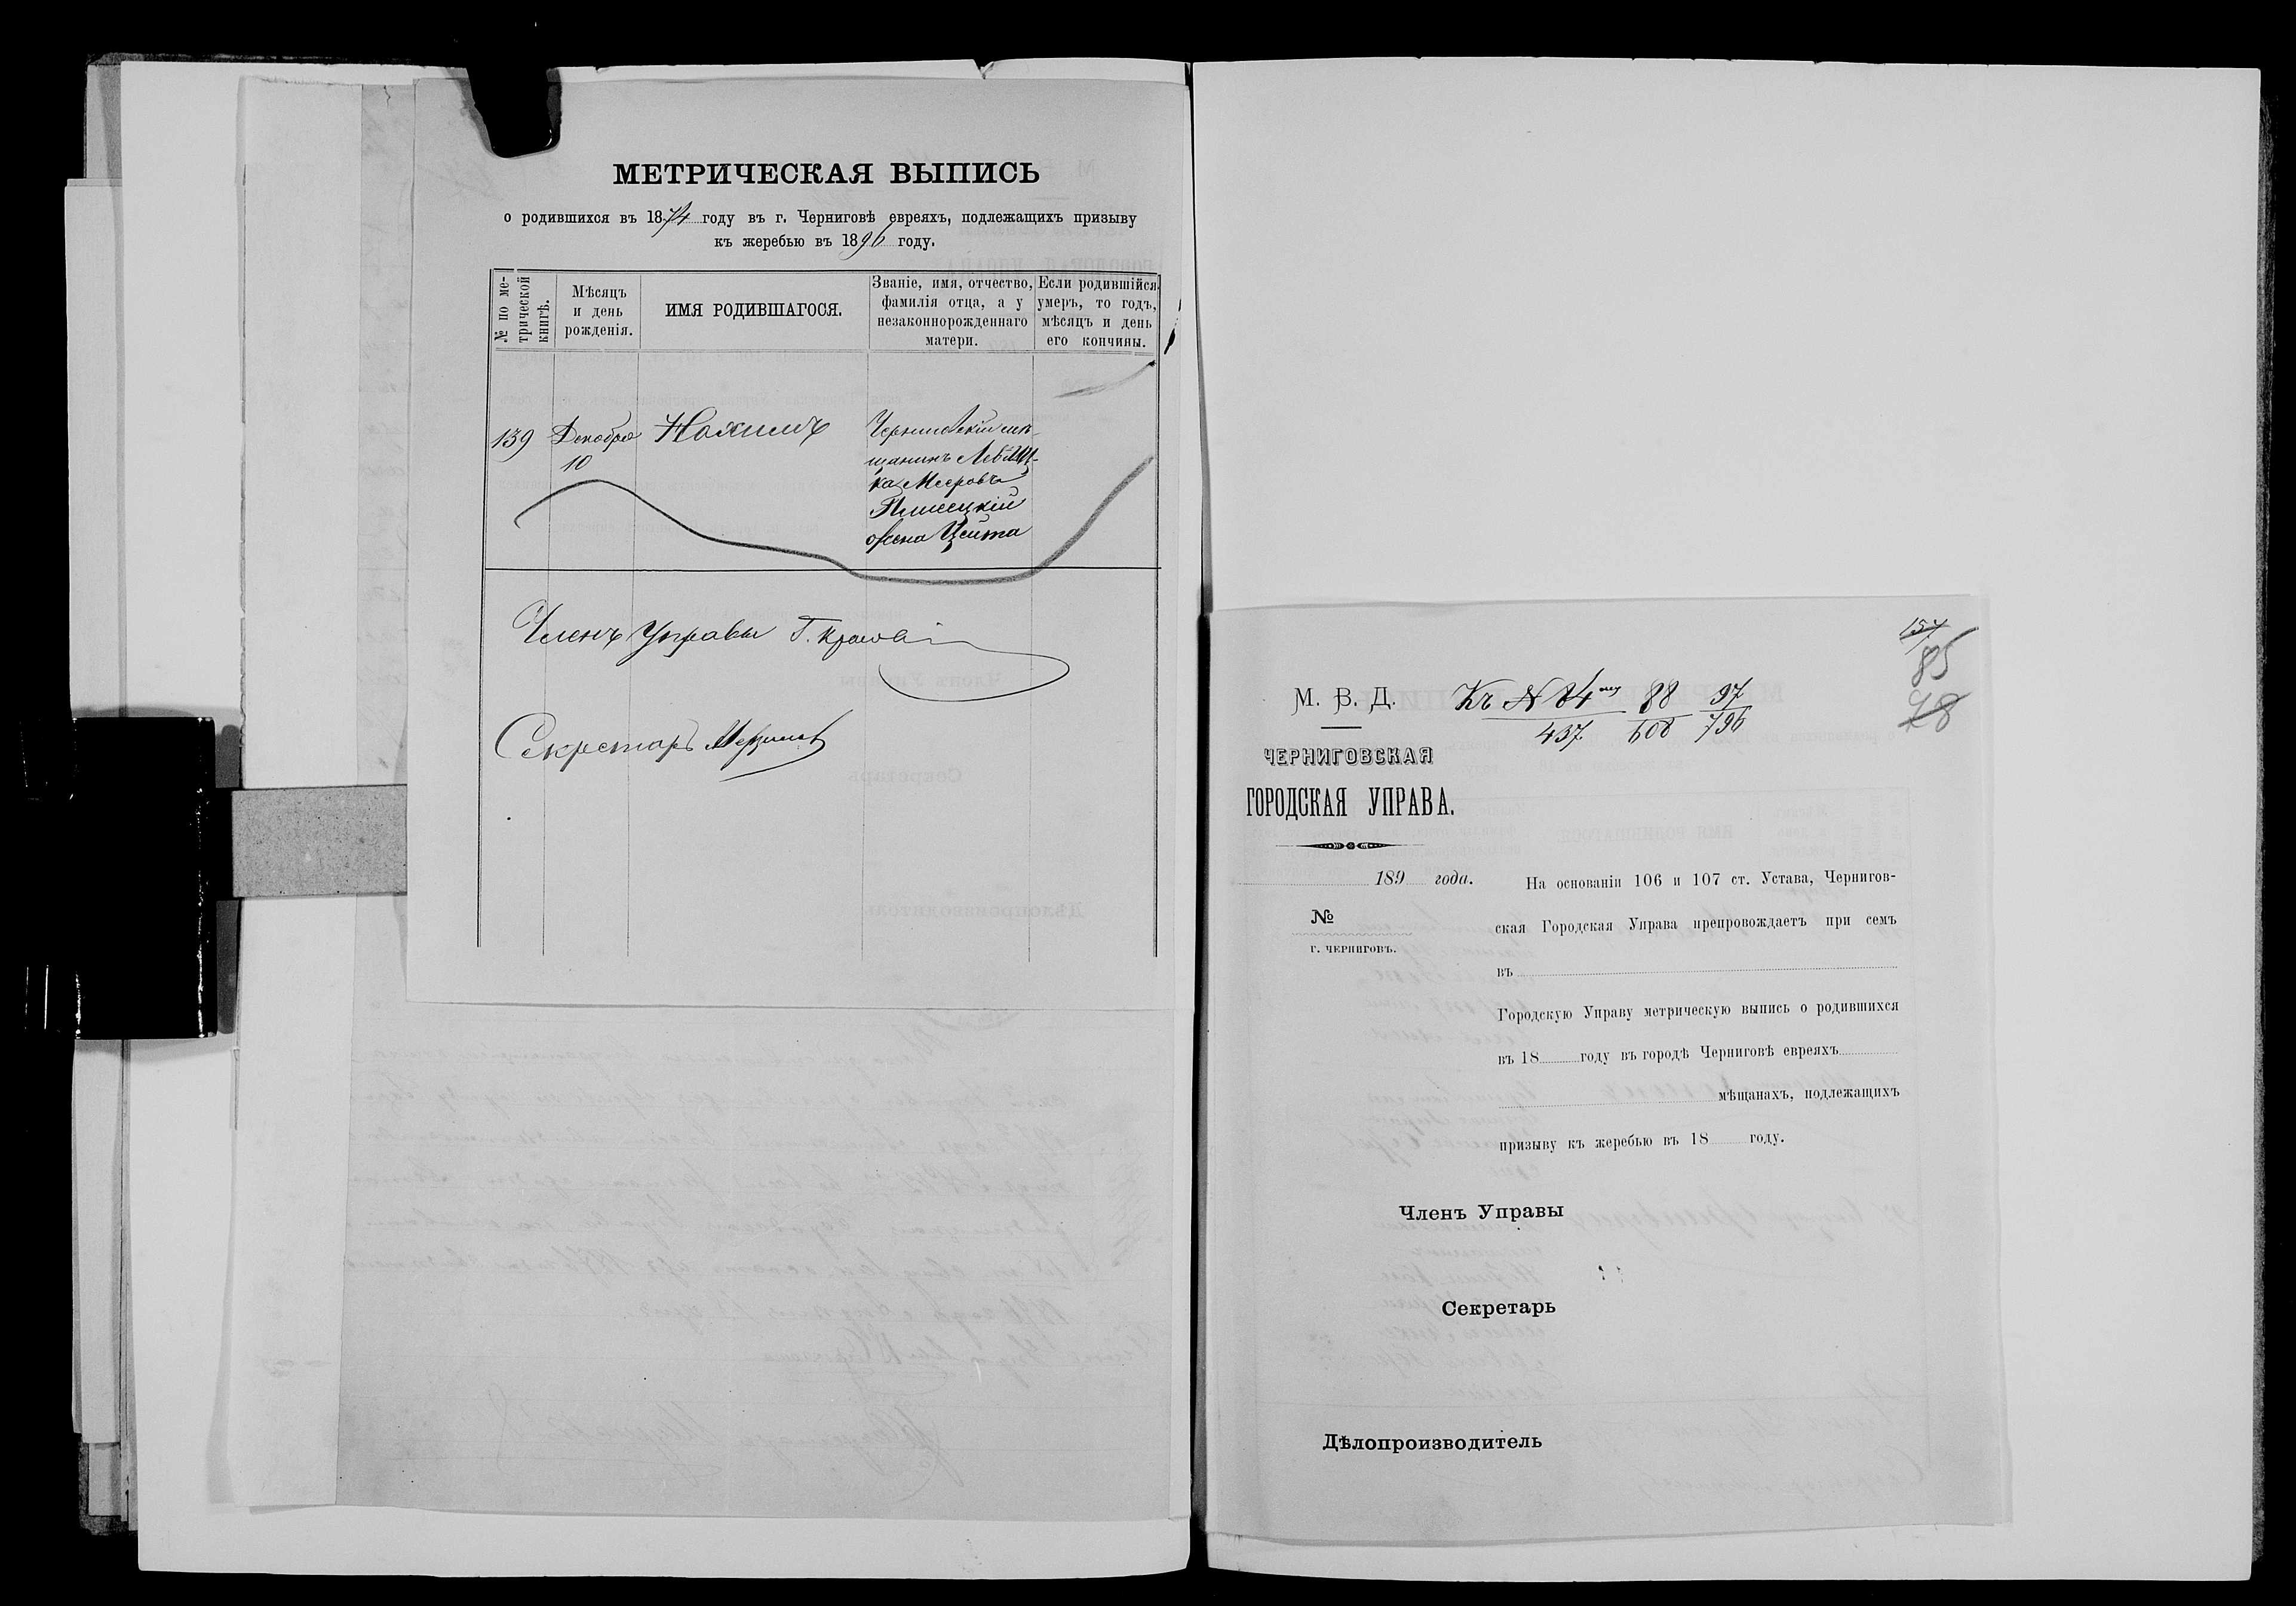 МЕТРИЧЕСКАЯ ВЫПИСЬ
о родившихся въ 1874 году въ г. Черниговѣ евреяхъ, подлежащихъ призыву
къ жеребью въ 1896 году.
№ по ме-
трической
книгѣ.
Мѣсяцъ
и день
рожденія.
ИМЯ РОДИВШАГОСЯ.
Званіе, имя, отчество,
фамилія отца, а у
незаконнорожденнаго
матери.
Если родившійся
умеръ, то годъ,
мѣсяцъ и день
его кончины.
139
Декабря
10
Нохимъ
Черниговскій мѣ-
щанинъ
Мееровъ
жена Цейта
Членъ Управы Г.
Секретарь
154
85
78
М. В. Д.
Къ № 84 88 97
437 608 796
ЧЕРНИГОВСКАЯ
ГОРОДСКАЯ УПРАВА.
189 года.
№
г. ЧЕРНИГОВЪ.
На основаніи 106 и 107 ст. Устава, Чернигов-
ская Городская Управа препровождаетъ при семъ
въ
Городскую Управу метрическую выпись о родившихся
въ 18 году въ городѣ Черниговѣ евреяхъ
мѣщанахъ, подлежащихъ
призыву къ жеребью въ 18 году.
Членъ Управы
Секретарь
Дѣлопроизводитель